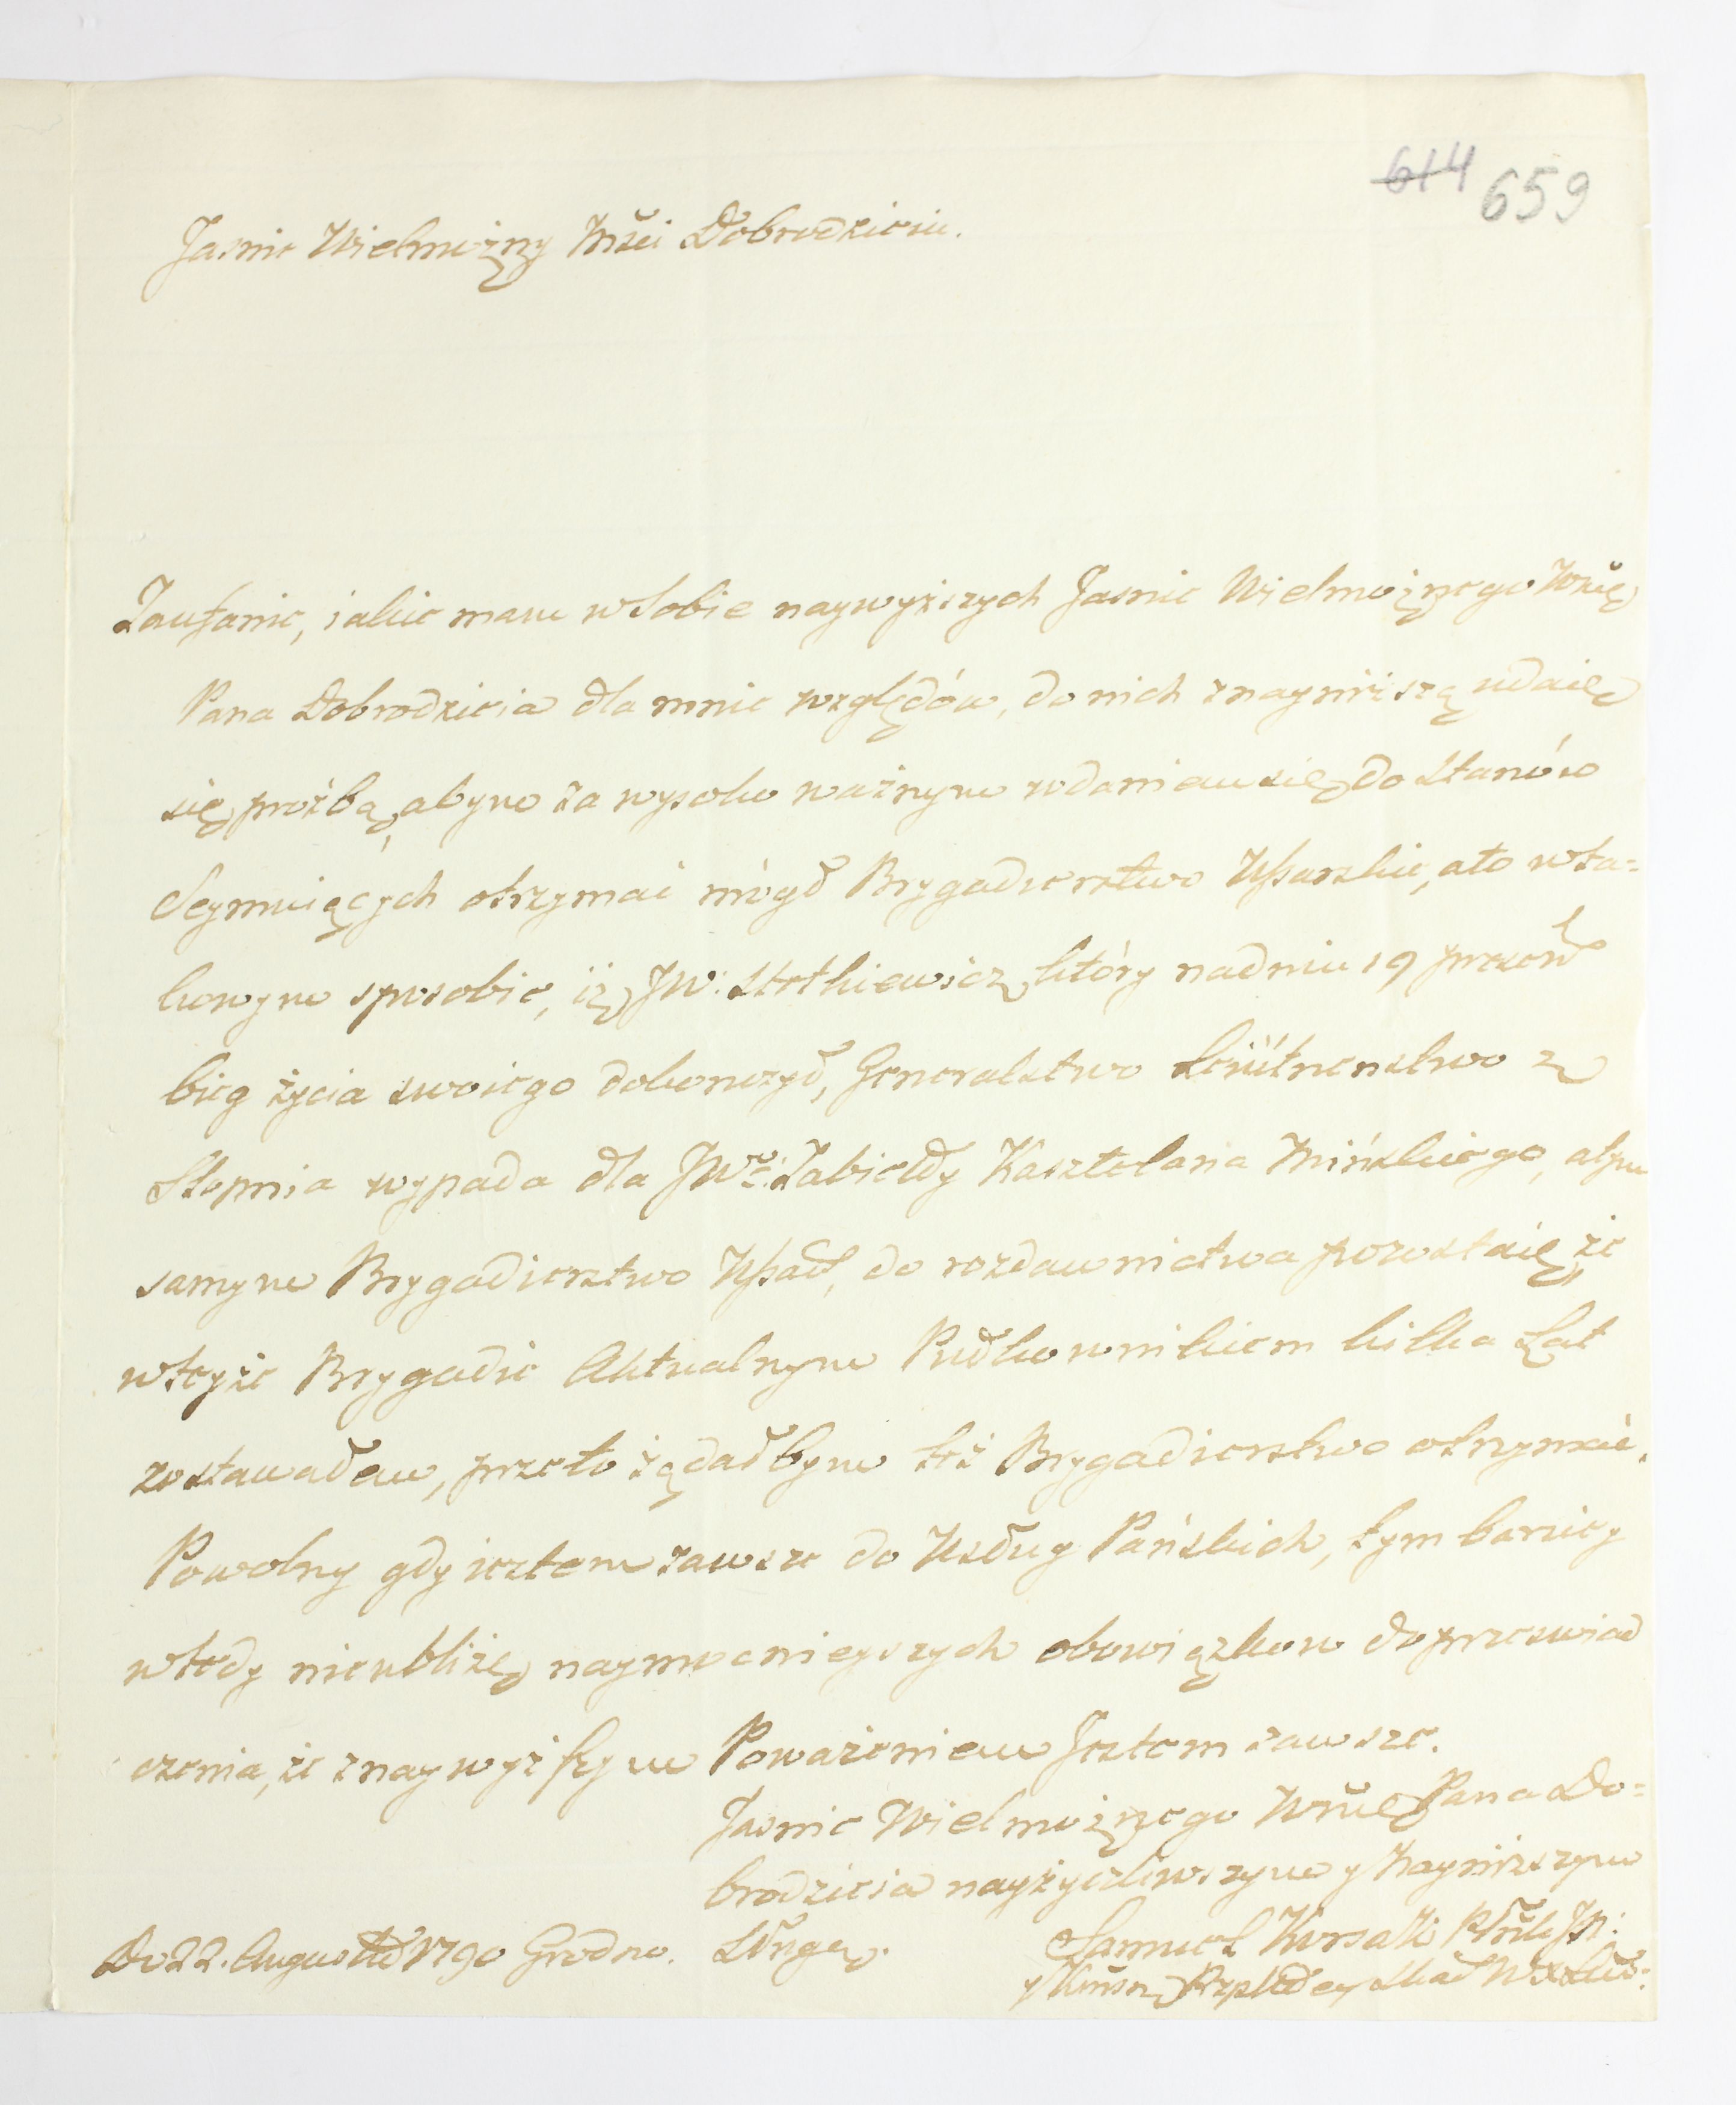 614 659
Jasnie Wielmożny Mści Dobrodzieiu.
Zaufanie, iakie mam w Sobie naywyższych Jasnie Wielmożnego WMć
Pana Dobrodzieia dla mnie względów, do nich znayniższą udaię
się prożbą, abym za wysoko ważnym wdaniem się do Stanów
Seymuiących otrzymać mógł Brygadierstwo Ussarskie, a to w ta-
kowym sposobie, iż JW: Stetkiewicz, który na dniu 19 praesen
bieg życia swoiego dokonczył, Generalstwo Leütnenstwo z
Stopnia wypada dla JWo: Zabiełły Kasztelana Mińskiego, a tym
samym Brygadierstwo Ussar, do rozdawnictwa pozostaie, że
w teyże Brygadie Aktualnym Pułkownikiem kilka Lat
zostawałem, przeto żądałbym też Brygadierstwo otrzymać.
Powolny gdy iestem zawsze do Usług Pańskich, tym barziey
wtedy nieubliżę naymocnieyszych obowiązkow do przeswiad
czenia, że z naywyższym Poważeniem Jestem zawsze.
Jasnie Wielmożnego WMć Pana Do-
brodzieia nayżyczliwszym y Nayniższym
Do 22. Augusta 1790 Grodno. Sługą.
Samuel Korsak